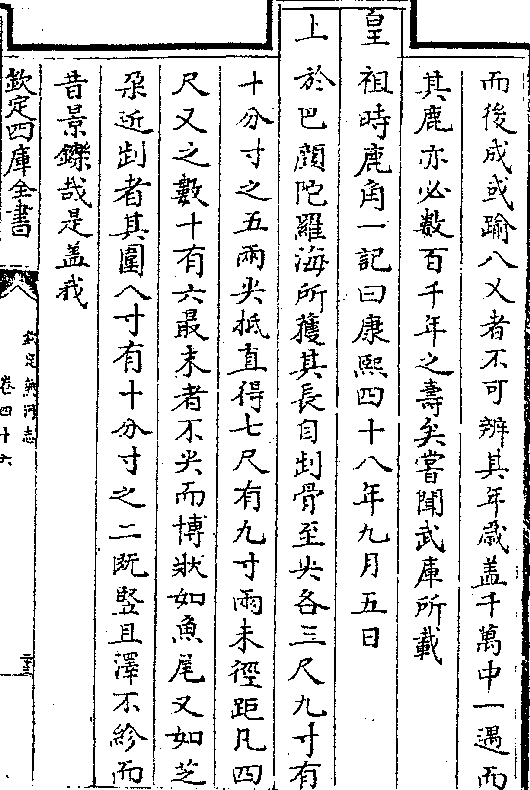 而後成或踰八叉者不可辨其年歲盖千萬中一遇而
其鹿亦必数百千年之壽矣嘗聞武庫所載
皇祖時鹿角一記曰康熙四十八年九月五日
上於巴顔陀羅海所獲其長自䶜骨至尖各三尺九寸有
十分寸之五兩尖抵直得七尺有九寸兩末徑距凡四
尺叉之數十有六最末者不尖而博狀如魚尾又如芝
朶近䶜者其圍八寸有十分寸之二既豎且澤不紾而
昔景鑠哉是盖我
欽定四庫全書
欽定熱河志
卷四十六